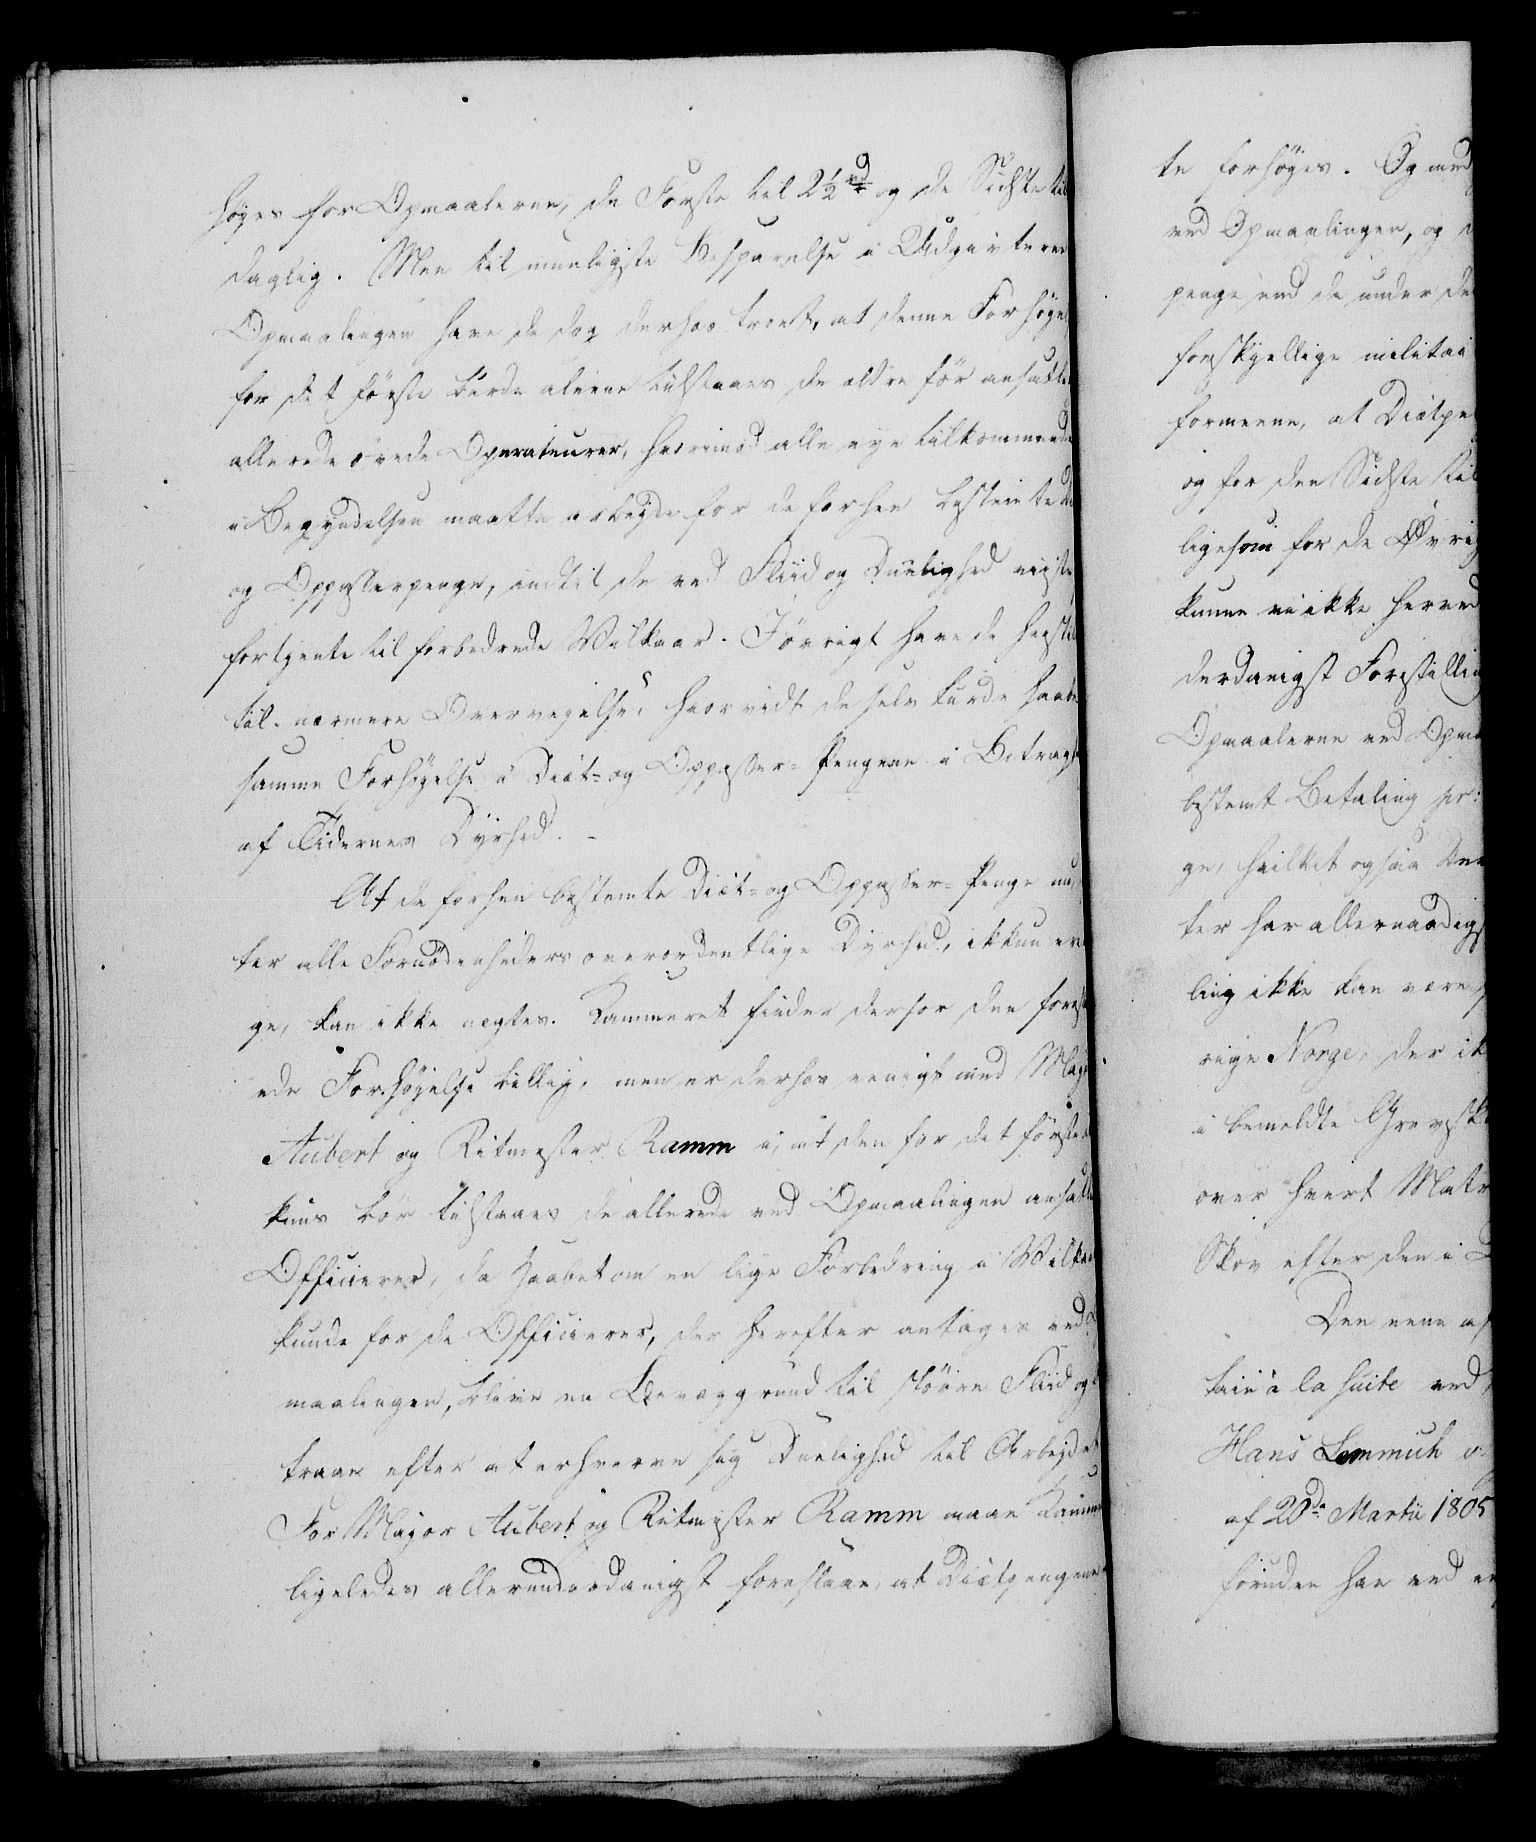 høyes for Opmaalerne, de Første til 2½ rd og de Sidste til
daglig. Men til mueligste Besparelse i Udgivterne
Opmaalingen have de dog derhos troet, at denne Forhøyel
for det første burde alene tilstaaes de ældre før ansatte
allerede øvede Operateurer, hvorimod alle nye tilkommende
i Begyndelsen maatte arbeyde for de forhen bestemte Di
og Oppasserpenge, indtil de ved Fliid og Duelighed viiste
fortjente til forbedrede Vilkaar. Iøvrigt have de henstil
til nærmere Overveyelse, hvorvidt de selv turde haabe
samme Forhøyelse i Diæt- og Oppasser-Pengene i Betragt
af Tidernes Dyrhed. -
At de forhen bestemte Diæt- og Oppasser-Penge nu, ef
ter alle Fornødenheders overordentlige Dyrhed, ikkun er
ge, kan ikke nægtes. Kammeret finder derfor den foresl
ede Forhøyelse billig, men er derhos eenigt med Major
Aubert og Ritmester Ramm i, at den for det første
kuns bør tilstaaes de allerede ved Opmaalingen ansatte
Officierer, da Haabet om en lige Forbedring i Vilkaar
kunde for de Officierer, der herefter antages ved Op
maalingen, blive en Bevæggrund til større Fliid og
traae efter at erhverve sig Duelighed til Arbeydet
For Major Aubert og Ritmester Ramm maae Kamme
ligeledes allerunderdanigst foreslaae, at Diætpengene
te forhøyes. Og med
ved Opmaalingen, og
penge end de under de
forskjellige militai
formeene, at Diætpe
og for den Sidste til
ligesom for de Øvrig
kunne vi ikke herved
derdanigst Forestilling
Opmaalerne ved Opma
bestemt Betaling pr:
ge, hvilket ogsaa De
ter har allernaadigst
ling ikke kan være
rige Norge, der ik
i bemeldte Grevska
over hvert Matr
Skov efter den i
Den eene af
tain à la suite ved
Hans Lemmich
af 20de Martii 1805
foruden han ved